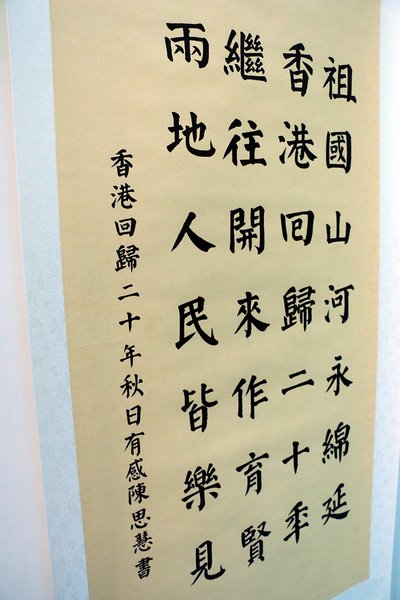 祖國山河永綿延
香港回歸二十年
繼往開來作育賢
兩地人民皆樂見
香港回歸二十年秋日有感陳思慧書